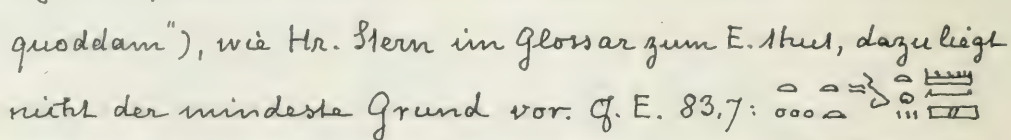 quoddam"), wie Hr. Stern im Glossar zum E. thut, dazu liegt
nicht der mindeste Grund vor. Cf. E. 83,7: